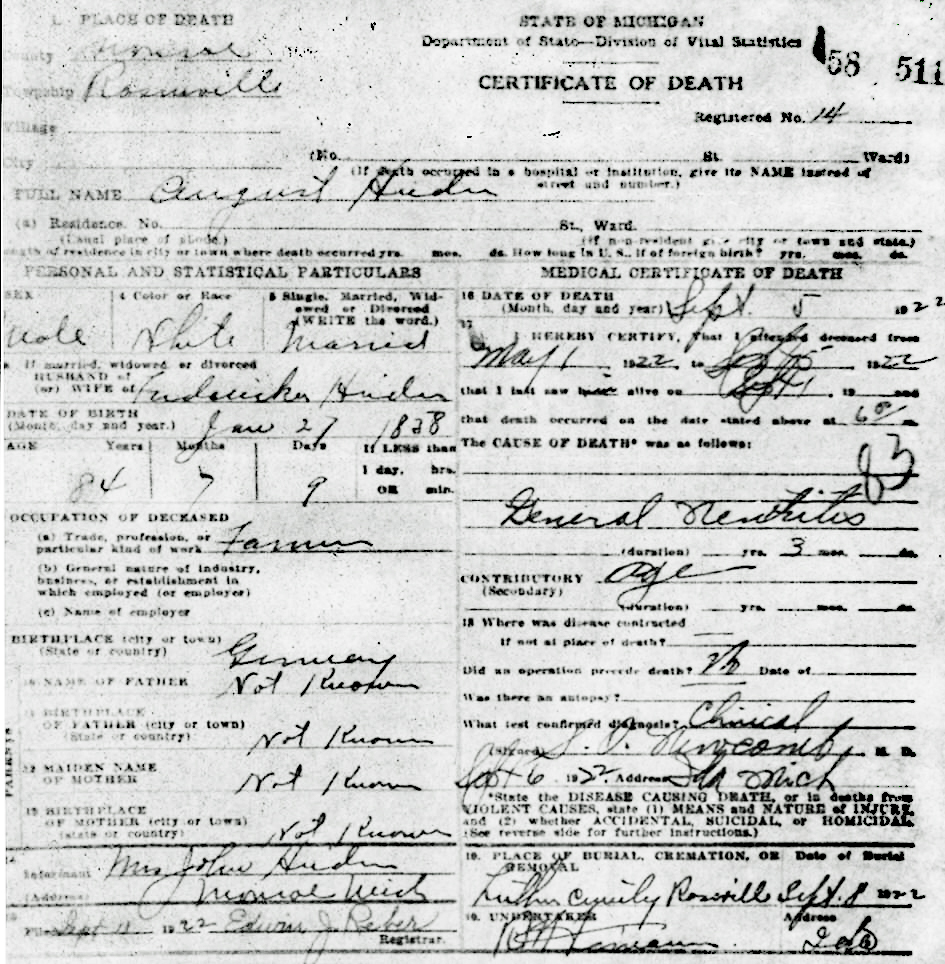 1. PLACE OF DEATH
County Monroe
Township
Village
City
STATE OF MICHIGAN
Department of State—Division of Vital Statistics
58 511
CERTIFICATE OF DEATH
Registered No. 14
(No. St. Ward)
(If death occurred in a hospital or institution, give its NAME instead of street and number.)
FULL NAME August
(a) Residence. No. St., Ward.
(Usual place of abode.) (If non-resident give city or town and state.)
Length of residence in city or town where death occurred yrs. mos. ds. How long in U. S., if of foreign birth? yrs. mos. ds.
PERSONAL AND STATISTICAL PARTICULARS
SEX 4 Color or Race 5 Single, Married, Widowed or Divorced (WRITE the word.)
Male White Married
If married, widowed or divorced
HUSBAND of
(or) WIFE of
DATE OF BIRTH
(Month, day and year.) Jan 27 1838
AGE Years Months Days If LESS than
1 day, hrs.
84 7 9 OR min.
OCCUPATION OF DECEASED
(a) Trade, profession, or
particular kind of work Farmer
(b) General nature of industry,
business, or establishment in
which employed (or employer)
(c) Name of employer
BIRTHPLACE (city or town)
(State or country) Germany
10 NAME OF FATHER Not Known
11 BIRTHPLACE
OF FATHER (city or town)
(State or country) Not Known
12 MAIDEN NAME
OF MOTHER Not Known
13 BIRTHPLACE
OF MOTHER (city or town)
(state or country) Not Known
PARENTS
Informant Mrs John
(Address) Monroe Mich
Filed Sept 11 1922 Edwin J. Reber
Registrar.
MEDICAL CERTIFICATE OF DEATH
16 DATE OF DEATH
(Month, day and year) Sept. 5 1922
17 I HEREBY CERTIFY, That I attended deceased from
May 1 1922 to Sept 5 1922
that I last saw alive on Sept 1 19 and
that death occurred on the date stated above at 6
The CAUSE OF DEATH* was as follows:
General
(duration) yrs. 3 mos. ds.
CONTRIBUTORY age
(Secondary)
(duration) yrs. mos. ds.
18 Where was disease contracted
If not at place of death?
Did an operation precede death? No Date of
Was there an autopsy?
What test confirmed diagnosis? Clinical
(Signed) Newcomb, M. D.
Sept 6 1922. Address Ida Mich
*State the DISEASE CAUSING DEATH, or in deaths from
VIOLENT CAUSES, state (1) MEANS and NATURE of INJURY,
and (2) whether ACCIDENTAL, SUICIDAL, or HOMICIDAL.
(See reverse side for further instructions.)
19. PLACE OF BURIAL, CREMATION, OR REMOVAL Date of Burial
Sept. 8 1922
19. UNDERTAKER Address
Ida